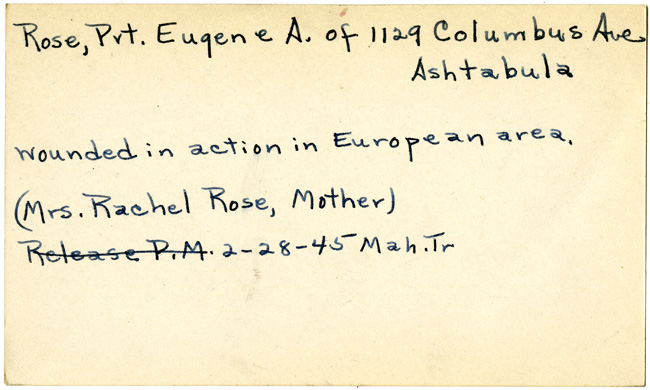 Rose, Pvt. Eugene A. of 1129 Columbus Ave
Ashtabula
wounded in action in European area.
(Mrs. Rachel Rose, Mother)
Release P.M. 2-28-45 Mah. Tr